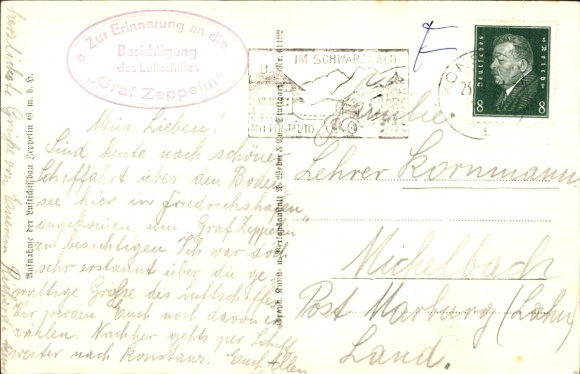 Zur Erinnerung an die
Besichtigung
des Luftschiffes
„Graf Zeppelin“
IM SCHWARZWALD
MIT POSTAUTO
KONS
Deutsches Reich
8 8
Aufnahme der Luftschiffbau Zeppelin G. m. b. H.
Stuttgart Nr. 61192
Meine Lieben.
Sind heute nach schöner
Schiffahrt über den Boden
see hier in Friedrichshafen
angekommen um „Graf Zeppelin“
zu besichtigen. Ich war
sehr erstaunt über die ge
waltige Größe des Luftschiffes
Wir werden Euch noch davon er
zählen. Nachher gehts per Schiff
weiter nach Konstanz. Euch allen
herzliche Grüße von Eurem
Familie
Lehrer Kornmann
Michelbach
Post Marburg (Lahn)
Land.